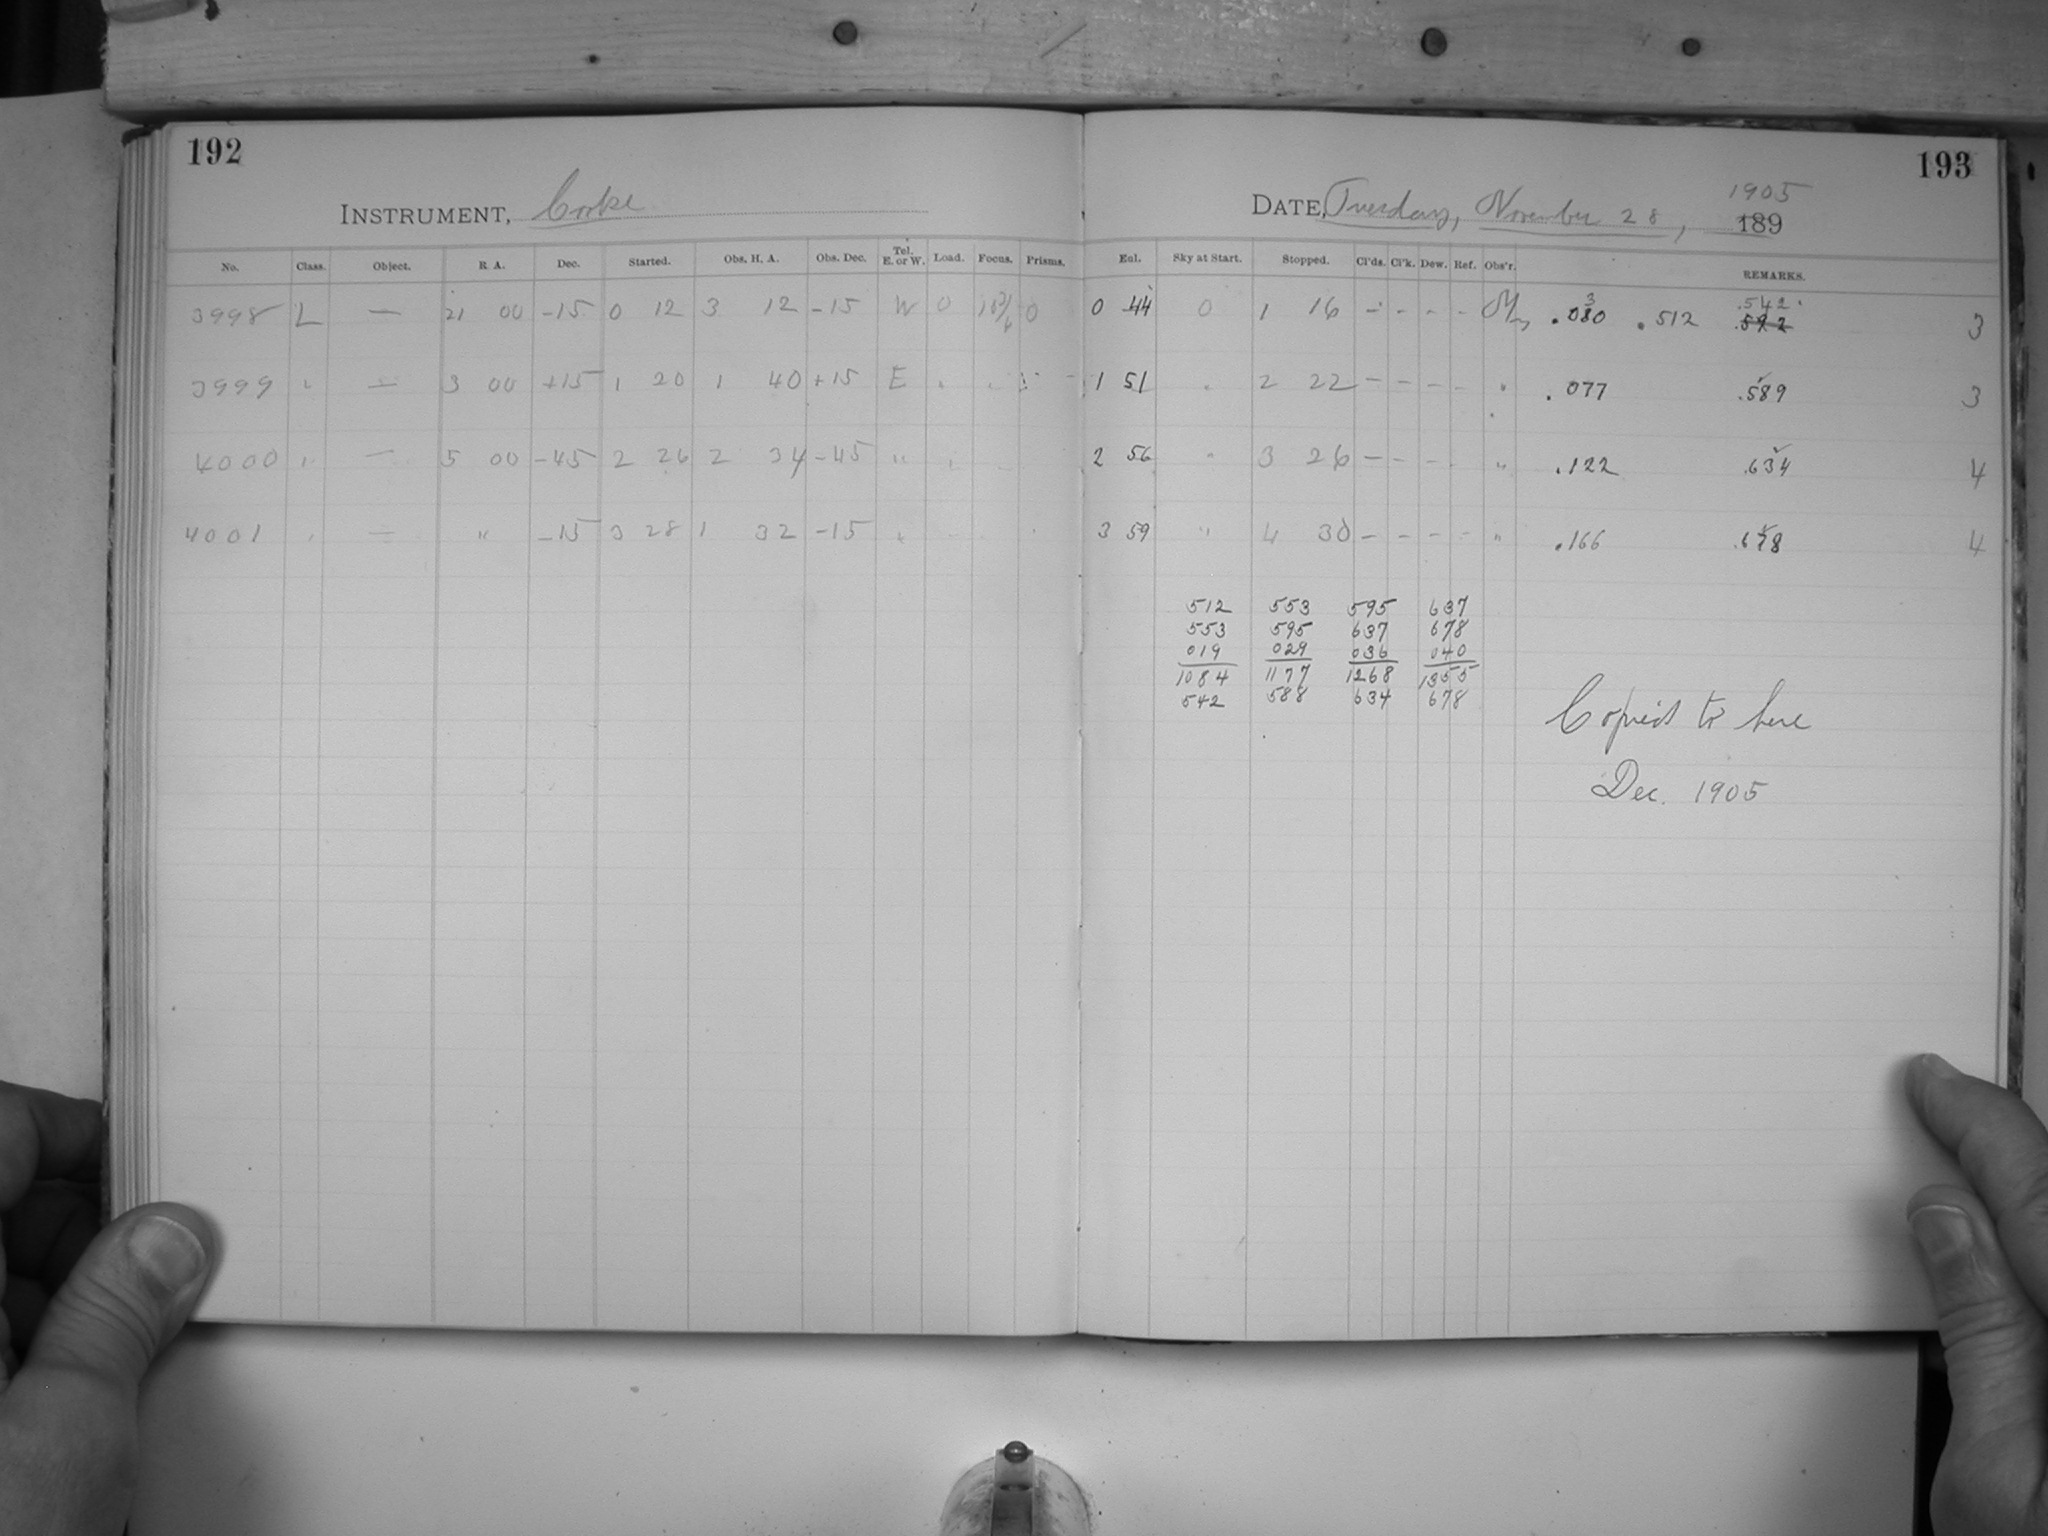 192
193
INSTRUMENT, Cooke
DATE, Tuesday, November 28, 1905 189
No. Class. Object. R. A. Dec. Started. Obs. H. A. Obs. Dec. Tel. E. or W. Load. Focus. Prisms. Enl. Sky at Start. Stopped. Cl'ds. Cl'k. Dew. Ref. Obs'r. REMARKS.
3998 L — 21 00 -15 0 12 3 12 -15 W 0 0 0 44 0 1 16 - - - - .080 3 .512 .542 .592 3
3999 " — 3 00 +15 1 20 1 40 +15 E " " 1 51 " 2 22 - - - - " .077 .589 3
4000 " — 5 00 -45 2 26 2 34 -45 " " 2 56 " 3 26 - - - - " .122 .634 4
4001 " — " -15 3 28 1 32 -15 " 3 59 " 4 30 - - - - " .166 .678 4
512 553 595 637
553 595 637 678
019 029 036 040
1084 1177 1268 1355
542 588 634 678
Copied to here
Dec. 1905